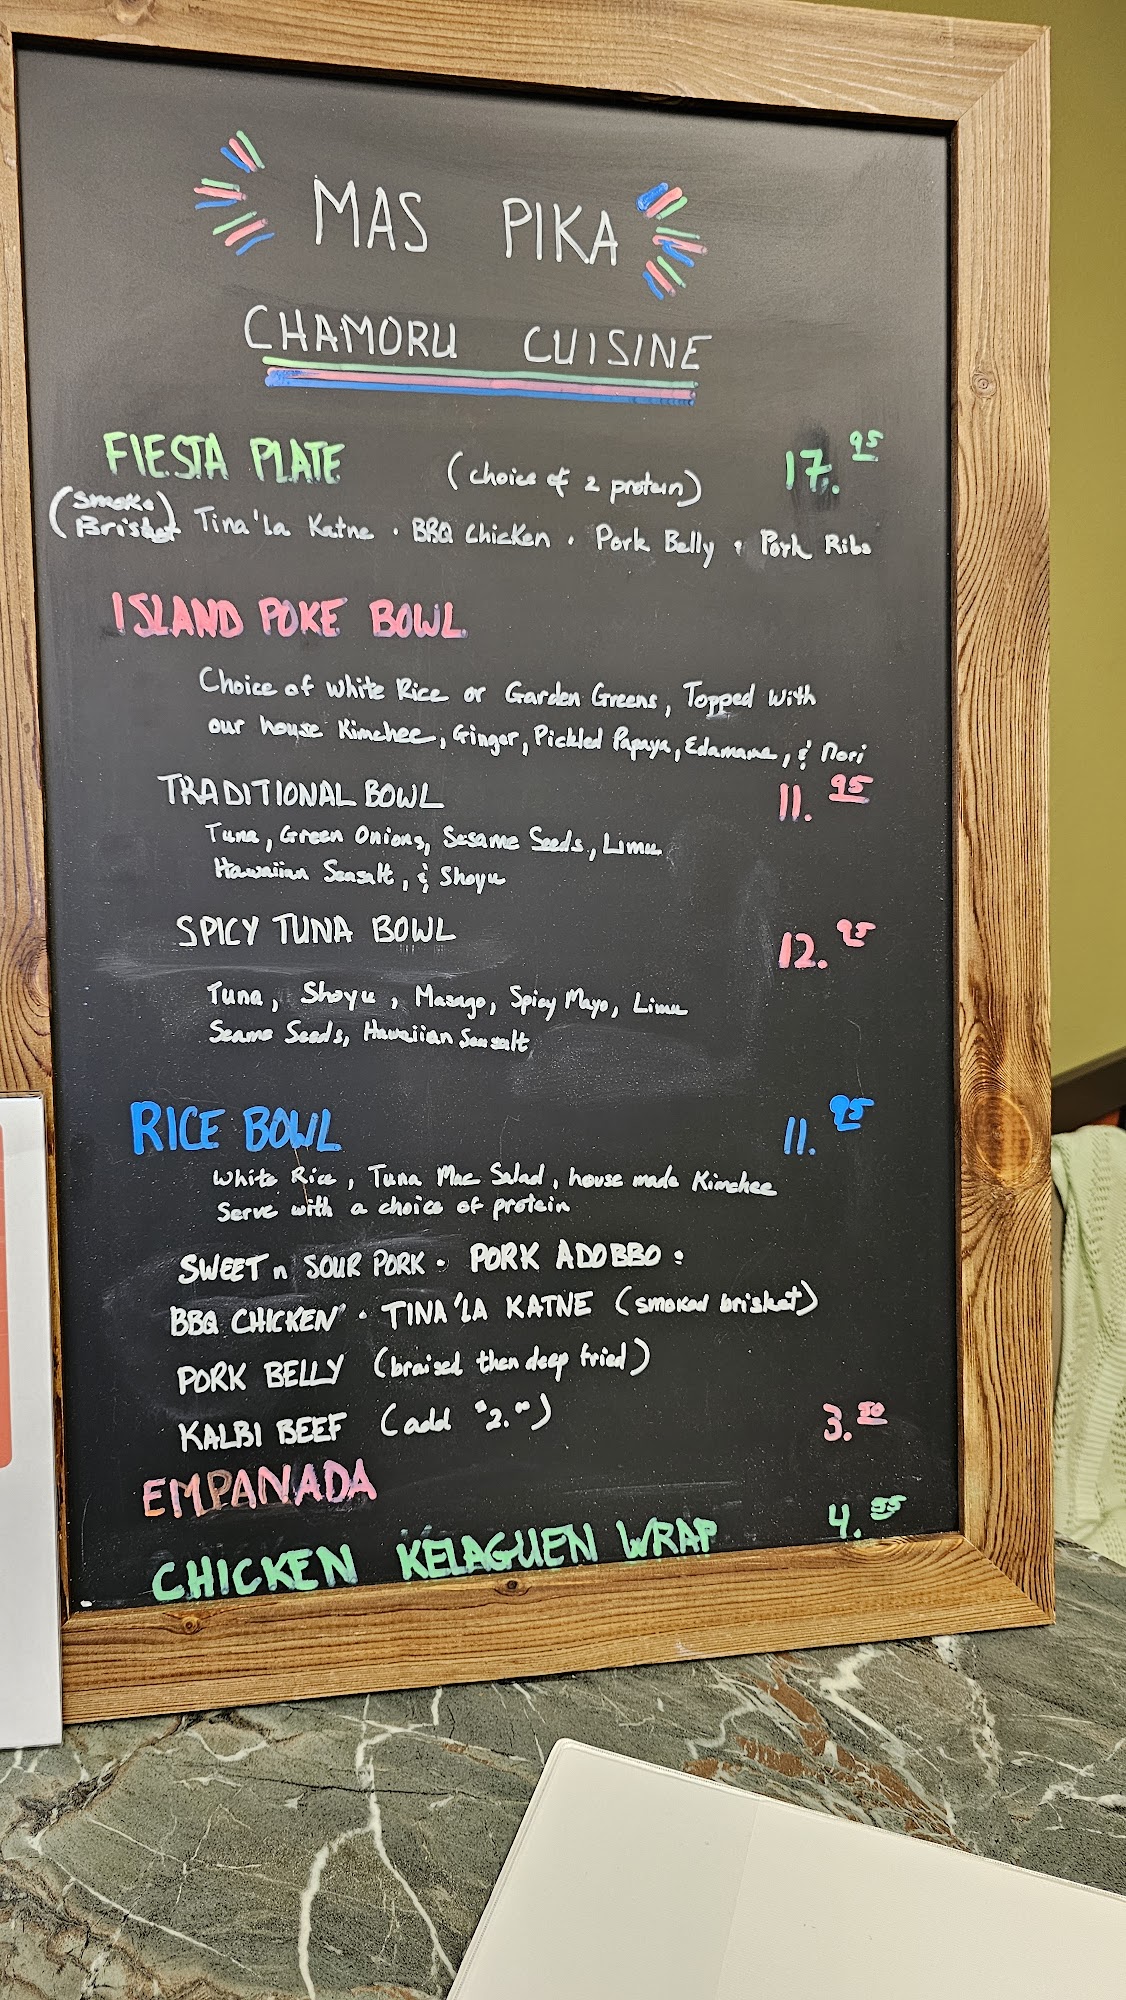 MAS PIKA
CHAMORU CUISINE
FIESTA PLATE (choice of 2 protein) 17.95
(Smoke Brisket) Tina'la Katne • BBQ Chicken • Pork Belly • Pork Ribs
ISLAND POKE BOWL
Choice of white Rice or Garden Greens, Topped with
our house Kimchee, Ginger, Pickled Papaya, Edamame, & Nori
TRADITIONAL BOWL 11.95
Tuna, Green Onions, Sesame Seeds, Limu
Hawaiian Seasalt, & Shoyu
SPICY TUNA BOWL 12.95
Tuna, Shoyu, Masago, Spicy Mayo, Limu
Seame Seeds, Hawaiian Seasalt
RICE BOWL 11.95
White Rice, Tuna Mac Salad, house made Kimchee
Serve with a choice of protein
SWEET n SOUR PORK • PORK ADOBBO •
BBQ CHICKEN • TINA'LA KATNE (smoked brisket)
PORK BELLY (braised then deep fried)
KALBI BEEF (add "2.")
EMPANADA 3.50
CHICKEN KELAGUEN WRAP 4.